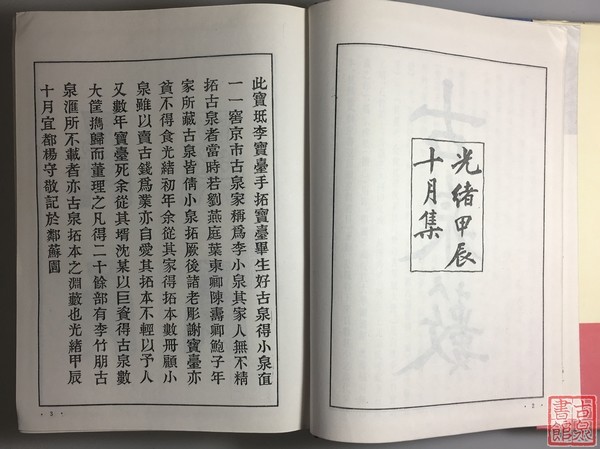 光緒甲辰
十月集
·2·
此寶坻李寶臺手拓寶臺畢生好古泉得小泉直
一一窖京市古泉家稱爲李小泉其家人無不精
拓古泉者當時若劉燕庭葉東卿陳壽卿鮑子年
家所藏古泉皆倩小泉拓厥後諸老彫謝寶臺亦
貧不得食光緒初年余從其家得拓本數冊顧小
泉雖以賣古錢爲業亦自愛其拓本不輕以予人
又數年寶臺死余從其壻沈某以巨資得古泉數
大筐擕歸而董理之凡得二十餘部有李竹朋古
泉滙所不載者亦古泉拓本之淵藪也光緒甲辰
十月宜都楊守敬記於鄰蘇園
·3·
古泉
書館